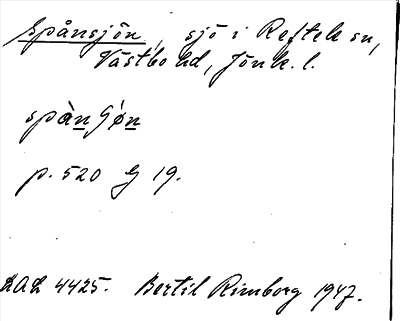 Spånsjön, sjö i Reftele sn,
Västbo hd, Jönk. l.
p. 520 G 19.
DAL 4425. Bertil Rimborg 1947.